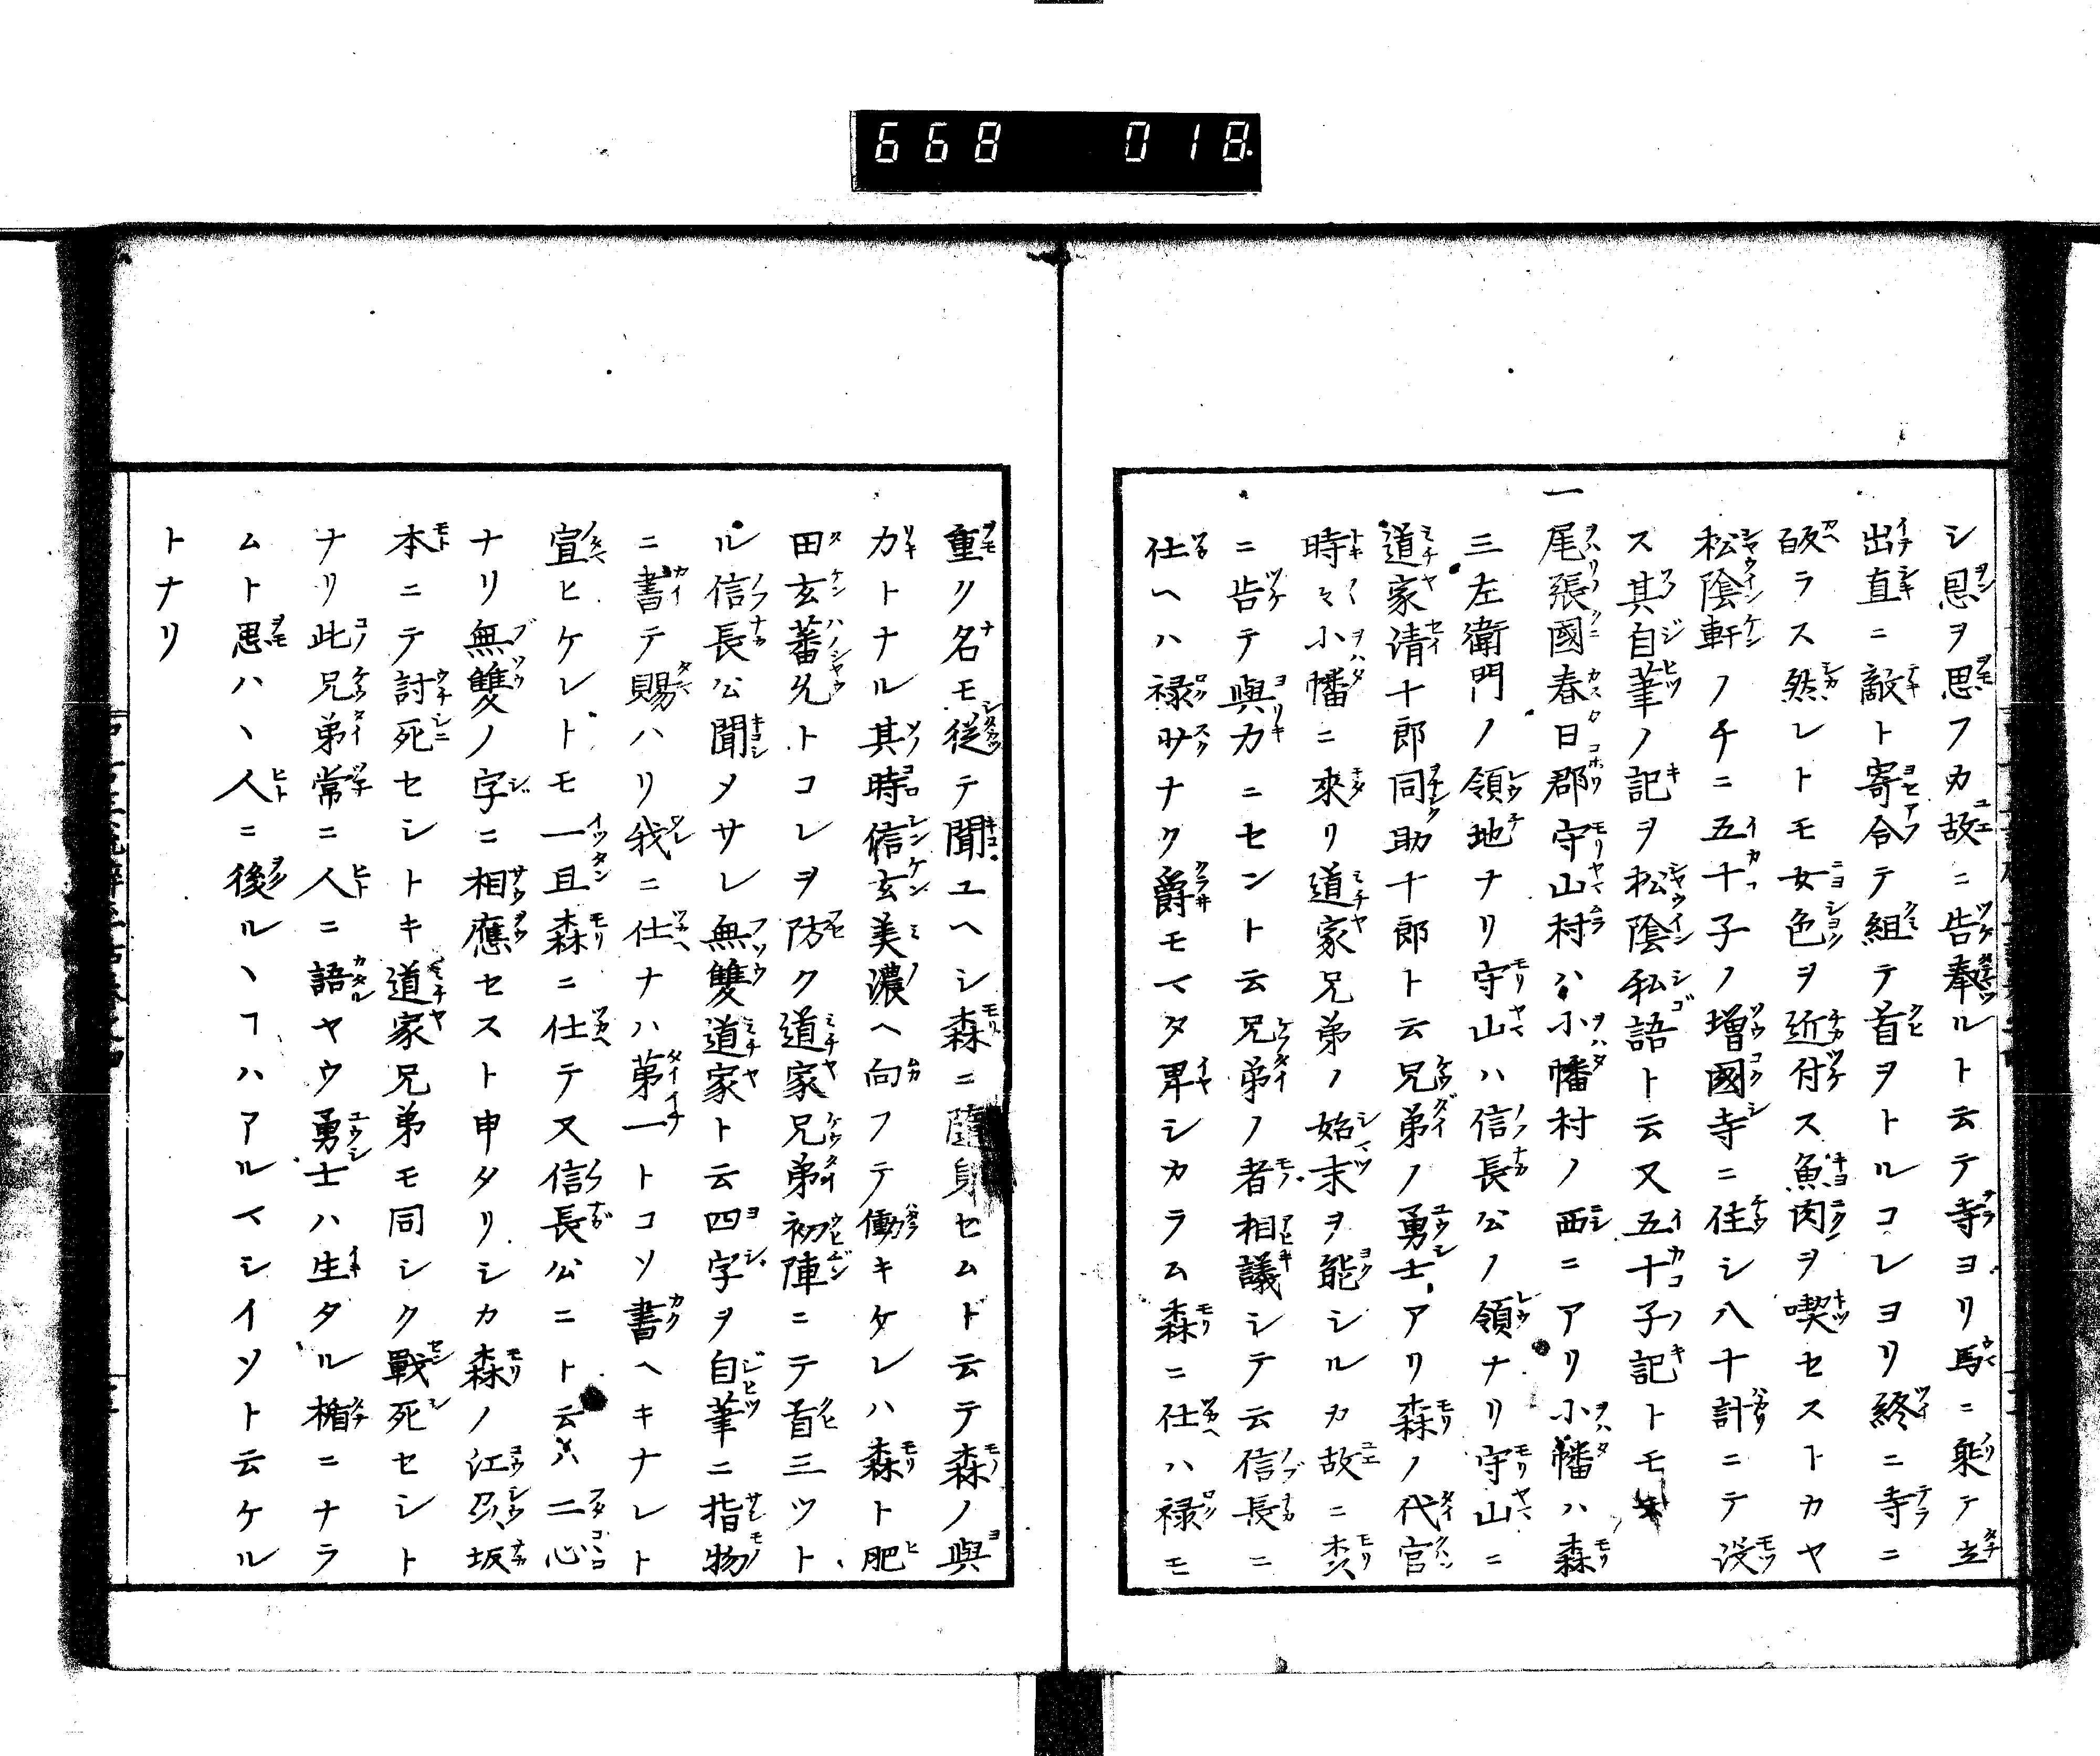 668 018
シ恩ヲ思フカ故ニ告奉ルト云テ寺ヨリ馬ニ乗テ立
出直ニ敵ト寄合テ組テ首ヲトルコレヨリ終ニ寺ニ
皈ラス然レトモ女色ヲ近付ス魚肉ヲ喫セストカヤ
松陰軒ノチニ五十子ノ増國寺ニ住シ八十計ニテ没
ス其自筆ノ記ヲ松陰私語ト云又五十子記トモ
一尾張國春日郡守山村ハ小幡村ノ西ニアリ小幡ハ森
三左衛門ノ領地ナリ守山ハ信長公ノ領ナリ守山ニ
道家清十郎同助十郎ト云兄弟ノ勇士アリ森ノ代官
時々小幡ニ來リ道家兄弟ノ始末ヲ能シルカ故ニ森
ニ告テ與力ニセント云兄弟ノ者相議シテ云信長ニ
仕ヘハ禄サナク爵モイタ卑シカラム森ニ仕ヘハ禄モ
重ク名モ従テ聞ユヘシ森ニ隨身セムト云テ森ノ與
力トナル其時信玄美濃ヘ向フテ働キケレハ森ト肥
田玄蕃允トコレヲ防ク道家兄弟初陣ニテ首三ツト
ル信長公聞メサレ無雙道家ト云四字ヲ自筆ニ指物
ニ書テ賜ハリ我ニ仕ナハ第一トコソ書ヘキナレト
宣ヒケレトモ一旦森ニ仕テ又信長公ニト云ハ二心
ナリ無雙ノ字ニ相應セスト申タリシカ森ノ江坂
本ニテ討死セシトキ道家兄弟モ同シク戰死セシト
ナリ此兄弟常ニ人ニ語ヤウ勇士ハ生タル楯ニナラ
ムト思ハヽ人ニ後ルヽヿハアルマシイソト云ケル
トナリ